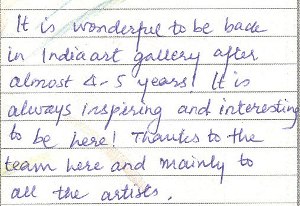 It is wonderful to be back
in Indiaart gallery after
almost 4-5 years! It is
always inspiring and interesting
to be here! Thanks to the
team here and mainly to
all the artists.